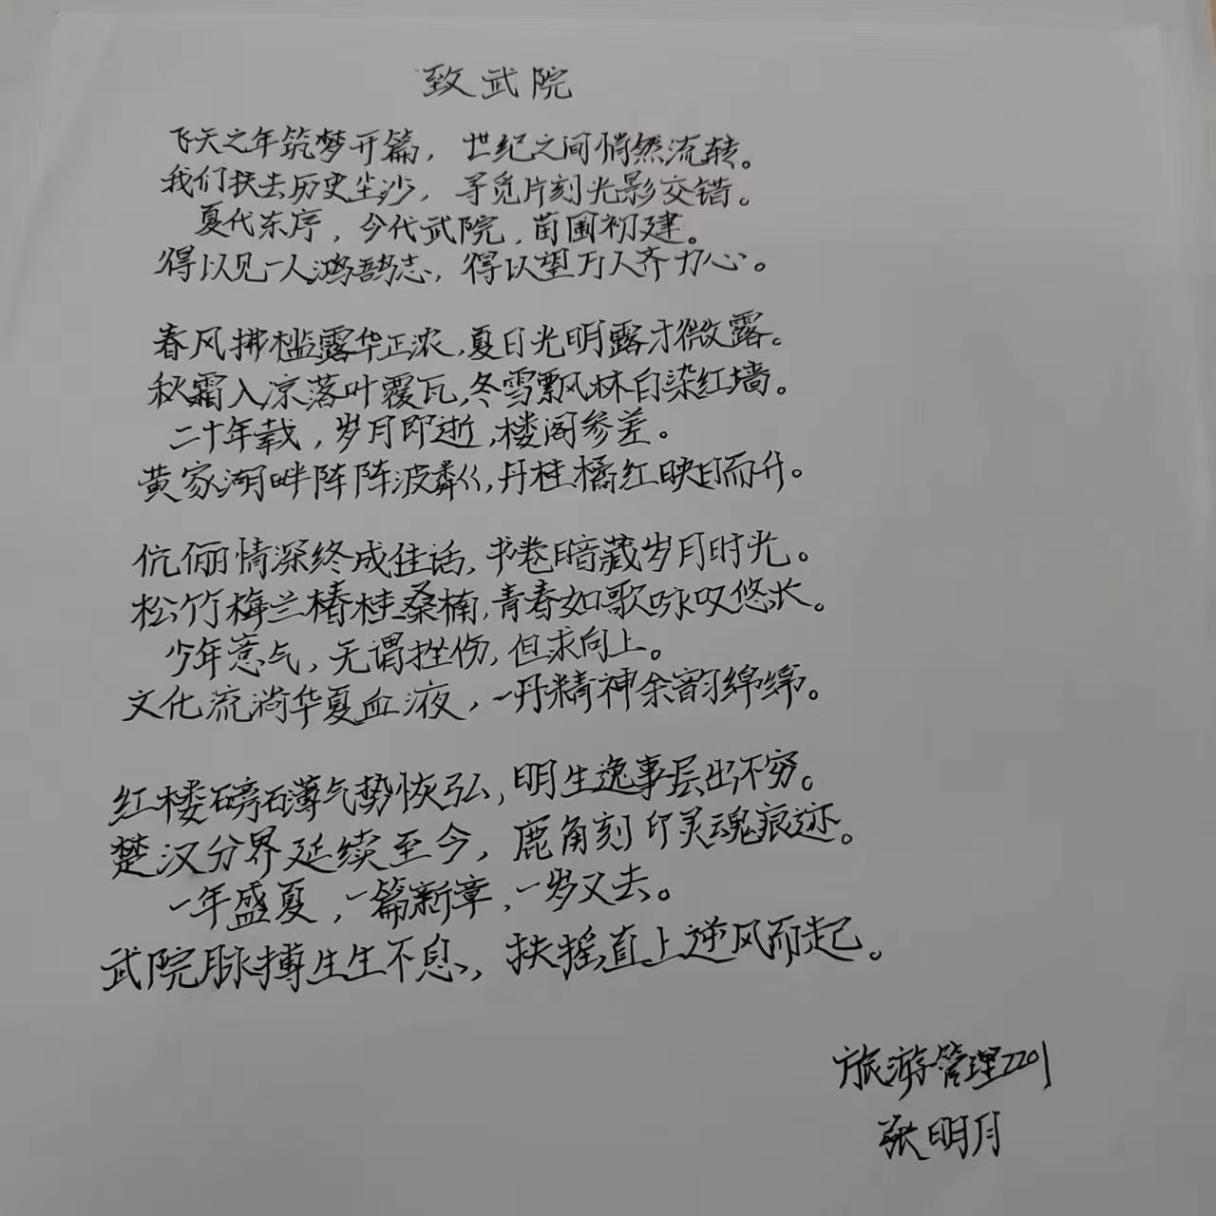 致武院
飞天之年筑梦开篇，世纪之间悄然流转。
我们扶去历史尘沙，寻觅片刻光影交错。
夏代东序，今代武院，苗圃初建。
得以见一人鸿鹄志，得以望万人齐力心。
春风拂槛露华正浓，夏日光明露才微露。
秋霜入凉落叶覆瓦，冬雪飘林白染红墙。
二十年载，岁月即逝，楼阁参差。
黄家湖畔阵阵波粼，丹桂橘红映日而升。
伉俪情深终成佳话，书卷暗藏岁月时光。
松竹梅兰椿桂桑楠，青春如歌咏叹悠长。
少年意气，无谓挫伤，但求向上。
文化流淌华夏血液，一丹精神余韵绵绵。
红楼磅礴气势恢弘，明生逸事层出不穷。
楚汉分界延续至今，鹿角刻印灵魂痕迹。
一年盛夏，一篇新章，一岁又去。
武院脉搏生生不息，扶摇直上逆风而起。
旅游管理2201
张明月